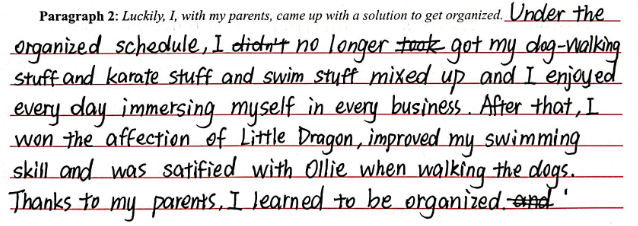 Paragraph 2: Luckily, I, with my parents, came up with a solution to get organized. Under the
organized schedule, I didn't no longer took got my dog-walking
stuff and karate stuff and swim stuff mixed up and I enjoyed
every day immersing myself in every business. After that, I
won the affection of Little Dragon, improved my swimming
skill and was satified with Ollie when walking the dogs.
Thanks to my parents, I learned to be organized. and